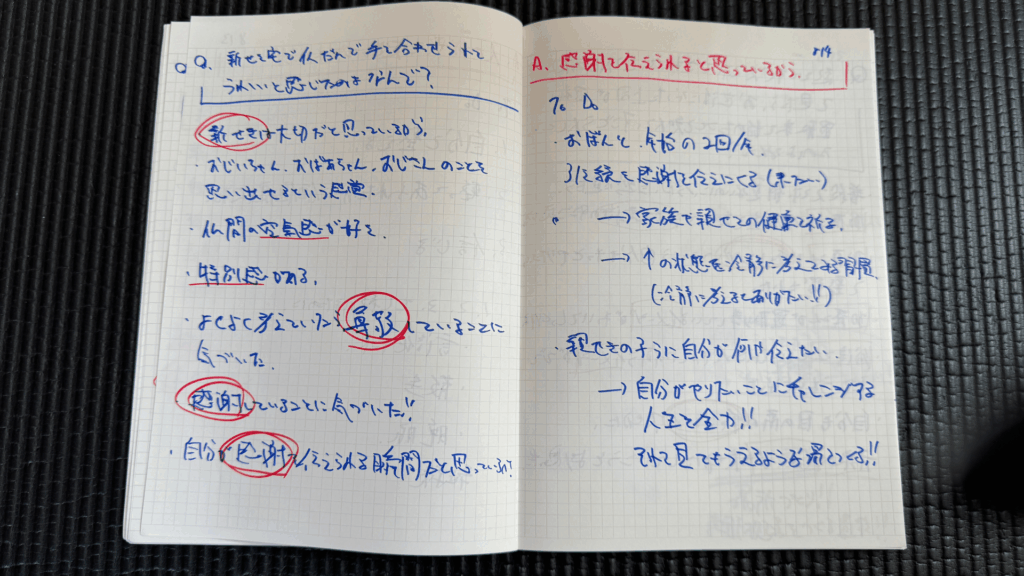 Q. 親せき宅で仏だんで手を合わせられて
うれしいと感じたのはなんで?
親せきは大切だと思っているから。
・おじいちゃん、おばあちゃん、おじさんのことを
思い出せるという感覚。
・仏間の空気感が好き。
・特別感がある。
・よくよく考えていたら尊敬していることに
気づいた。
感謝していることに気づいた!!
・自分が感謝を伝えられる瞬間だと思っているから?
8/14
A. 感謝を伝えられると思っているから。
To Do
・おぼんと、年始の2回/年
引き続き感謝を伝えにくる(来たい…)
→ 家族で親せきの健康を祈る。
→ ↑の状態を冷静に考えてみる習慣
(冷静に考えるとありがたい!!)
・親せきのように自分が何か伝えたい。
→ 自分がやりたいことにチャレンジする
人生を全力!!
それを見てもらえるような場をつくる!!